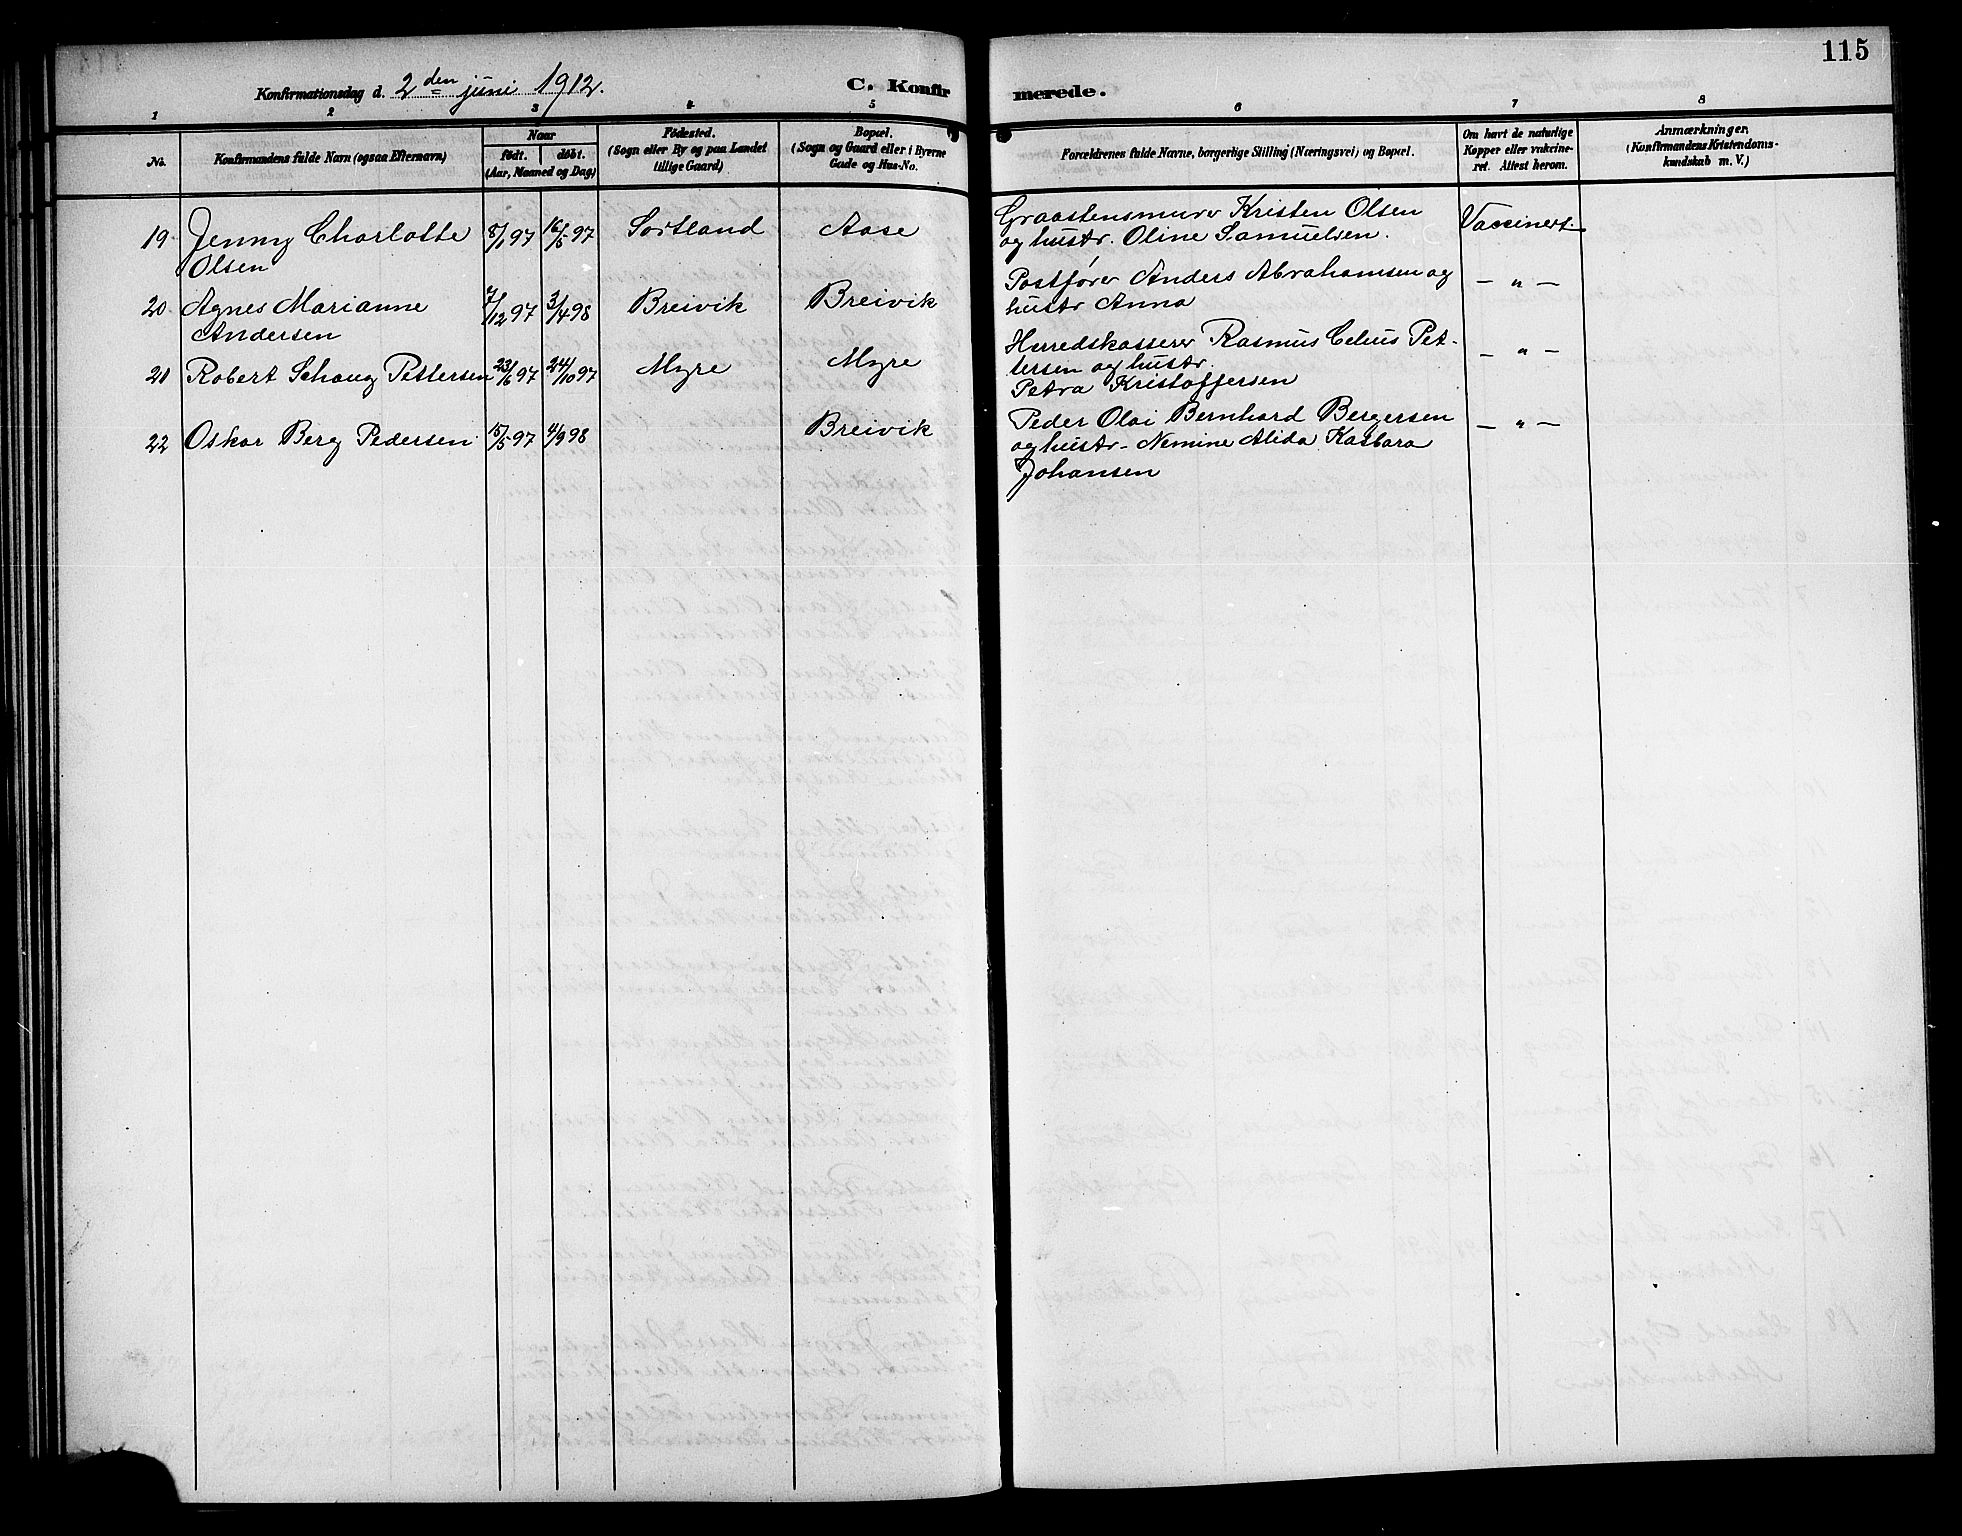 115
Konfirmationsdag d. 2den juni 1912.
C. Konfirmerede.
1 2 3 4 5 6 7 8
No.
Konfirmandens fulde Navn (ogsaa Efternavn)
Naar
födt. döbt.
(Aar, Maaned og Dag)
Födested.
(Sogn eller By og paa Landet
tillige Gaard)
Bopæl.
(Sogn og Gaard eller i Byerne
Gade og Hus-No.
Forældrenes fulde Navne, borgerlige Stilling (Næringsvei) og Bopæl.
Om havt de naturlige
Kopper eller vakcine-
ret. Attest herom.
Anmærkninger.
(Konfirmandens Kristendoms-
kundskab m. V.)
19. Jenny Charlotte 8/1 97 16/5 97 Sortland Aase Graastensmurer Kristen Olsen Vaccinert.
Olsen og hustr. Oline Samuelsen.
20. Agnes Marianne 7/12 97 3/4 98 Breivik Breivik Postfører Anders Abrahamsen og — " —
Andersen hustr Anna
21 Robert Schoug Pettersen 23/6 97 24/10 97 Myre Myre Herredskasserer Rasmus Celius Pet- — " —
tersen og hustr.
Petra Kristoffersen
22 Oskar Berg Pedersen 15/5 97 4/9 98 Breivik Peder Olai Bernhard Bergersen — " —
og hustr- Nemine Alida Kasbara
Johansen